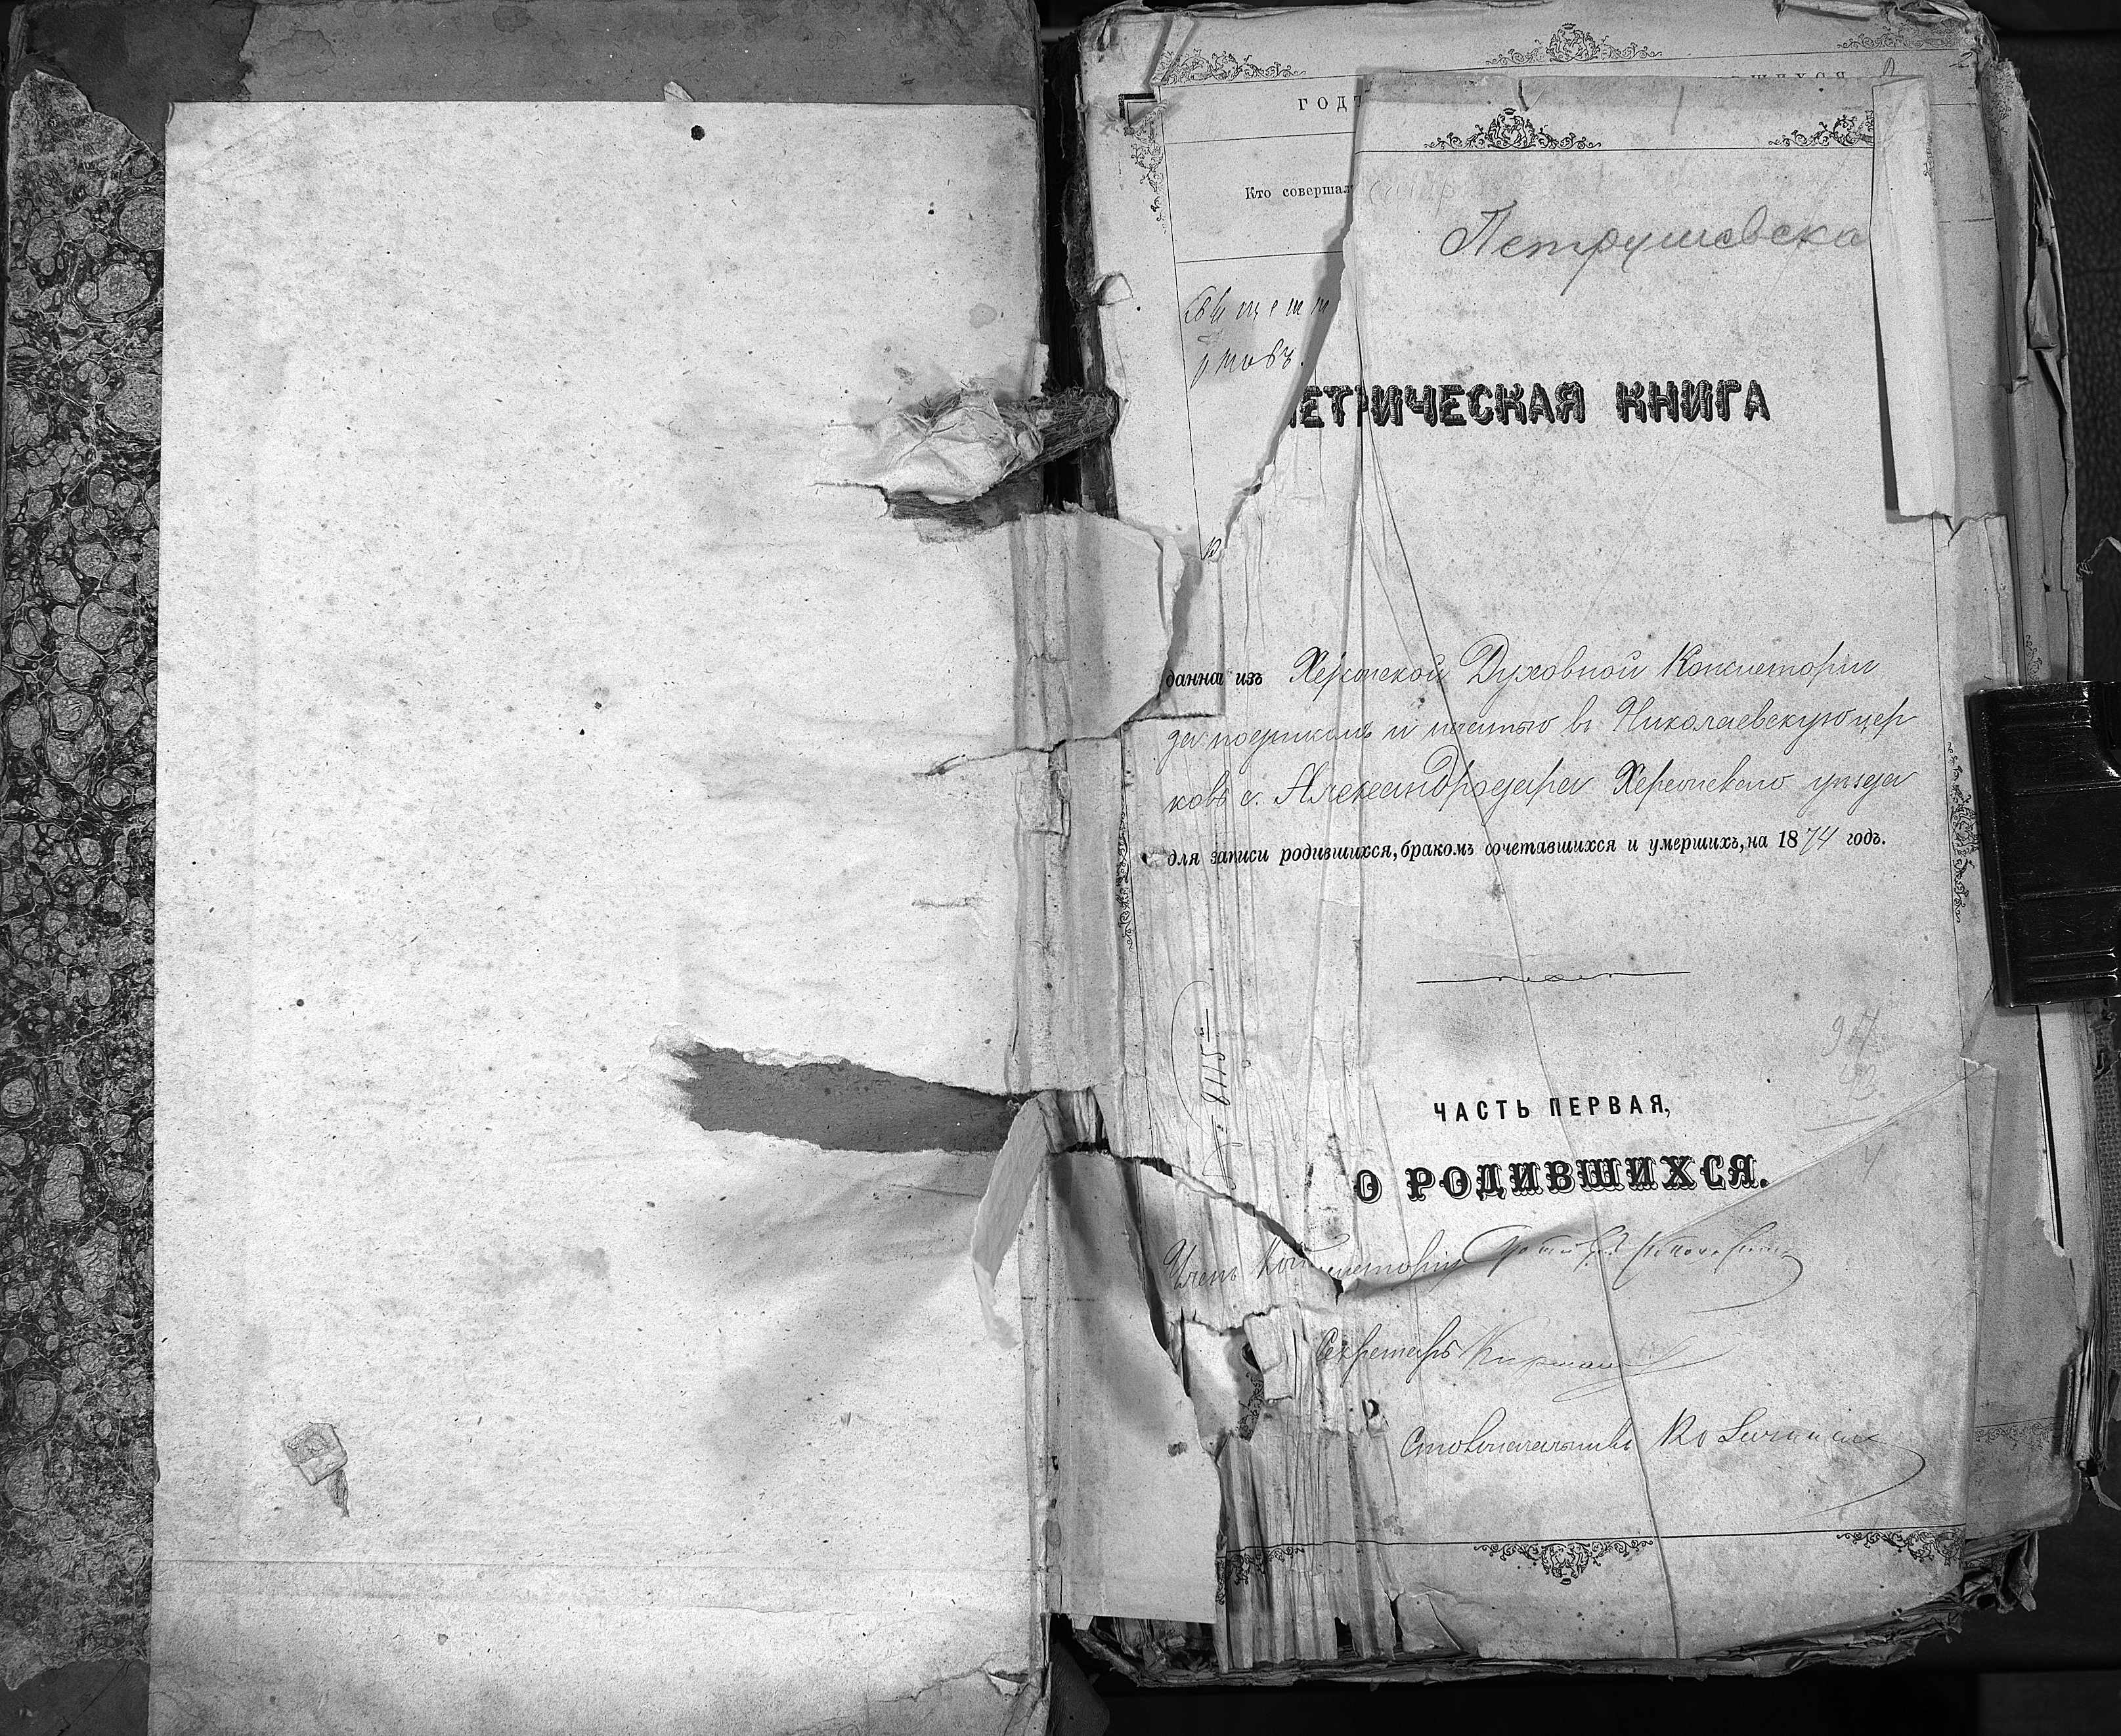 ГОДЪ
Кто совершал
Петрушевска
МЕТРИЧЕСКАЯ КНИГА
данная изъ Херсонской Духовной Консисторіи
за подписомъ и печатью въ Николаевскую цер
ковь с. Александродара Херсонскаго уѣзда
для записи родившихся, бракомъ сочетавшихся и умершихъ, на 1874 годъ.
№ 8115
ЧАСТЬ ПЕРВАЯ,
О РОДИВШИХСЯ.
Членъ Консисторіи
Секретарь
Столоначальникъ